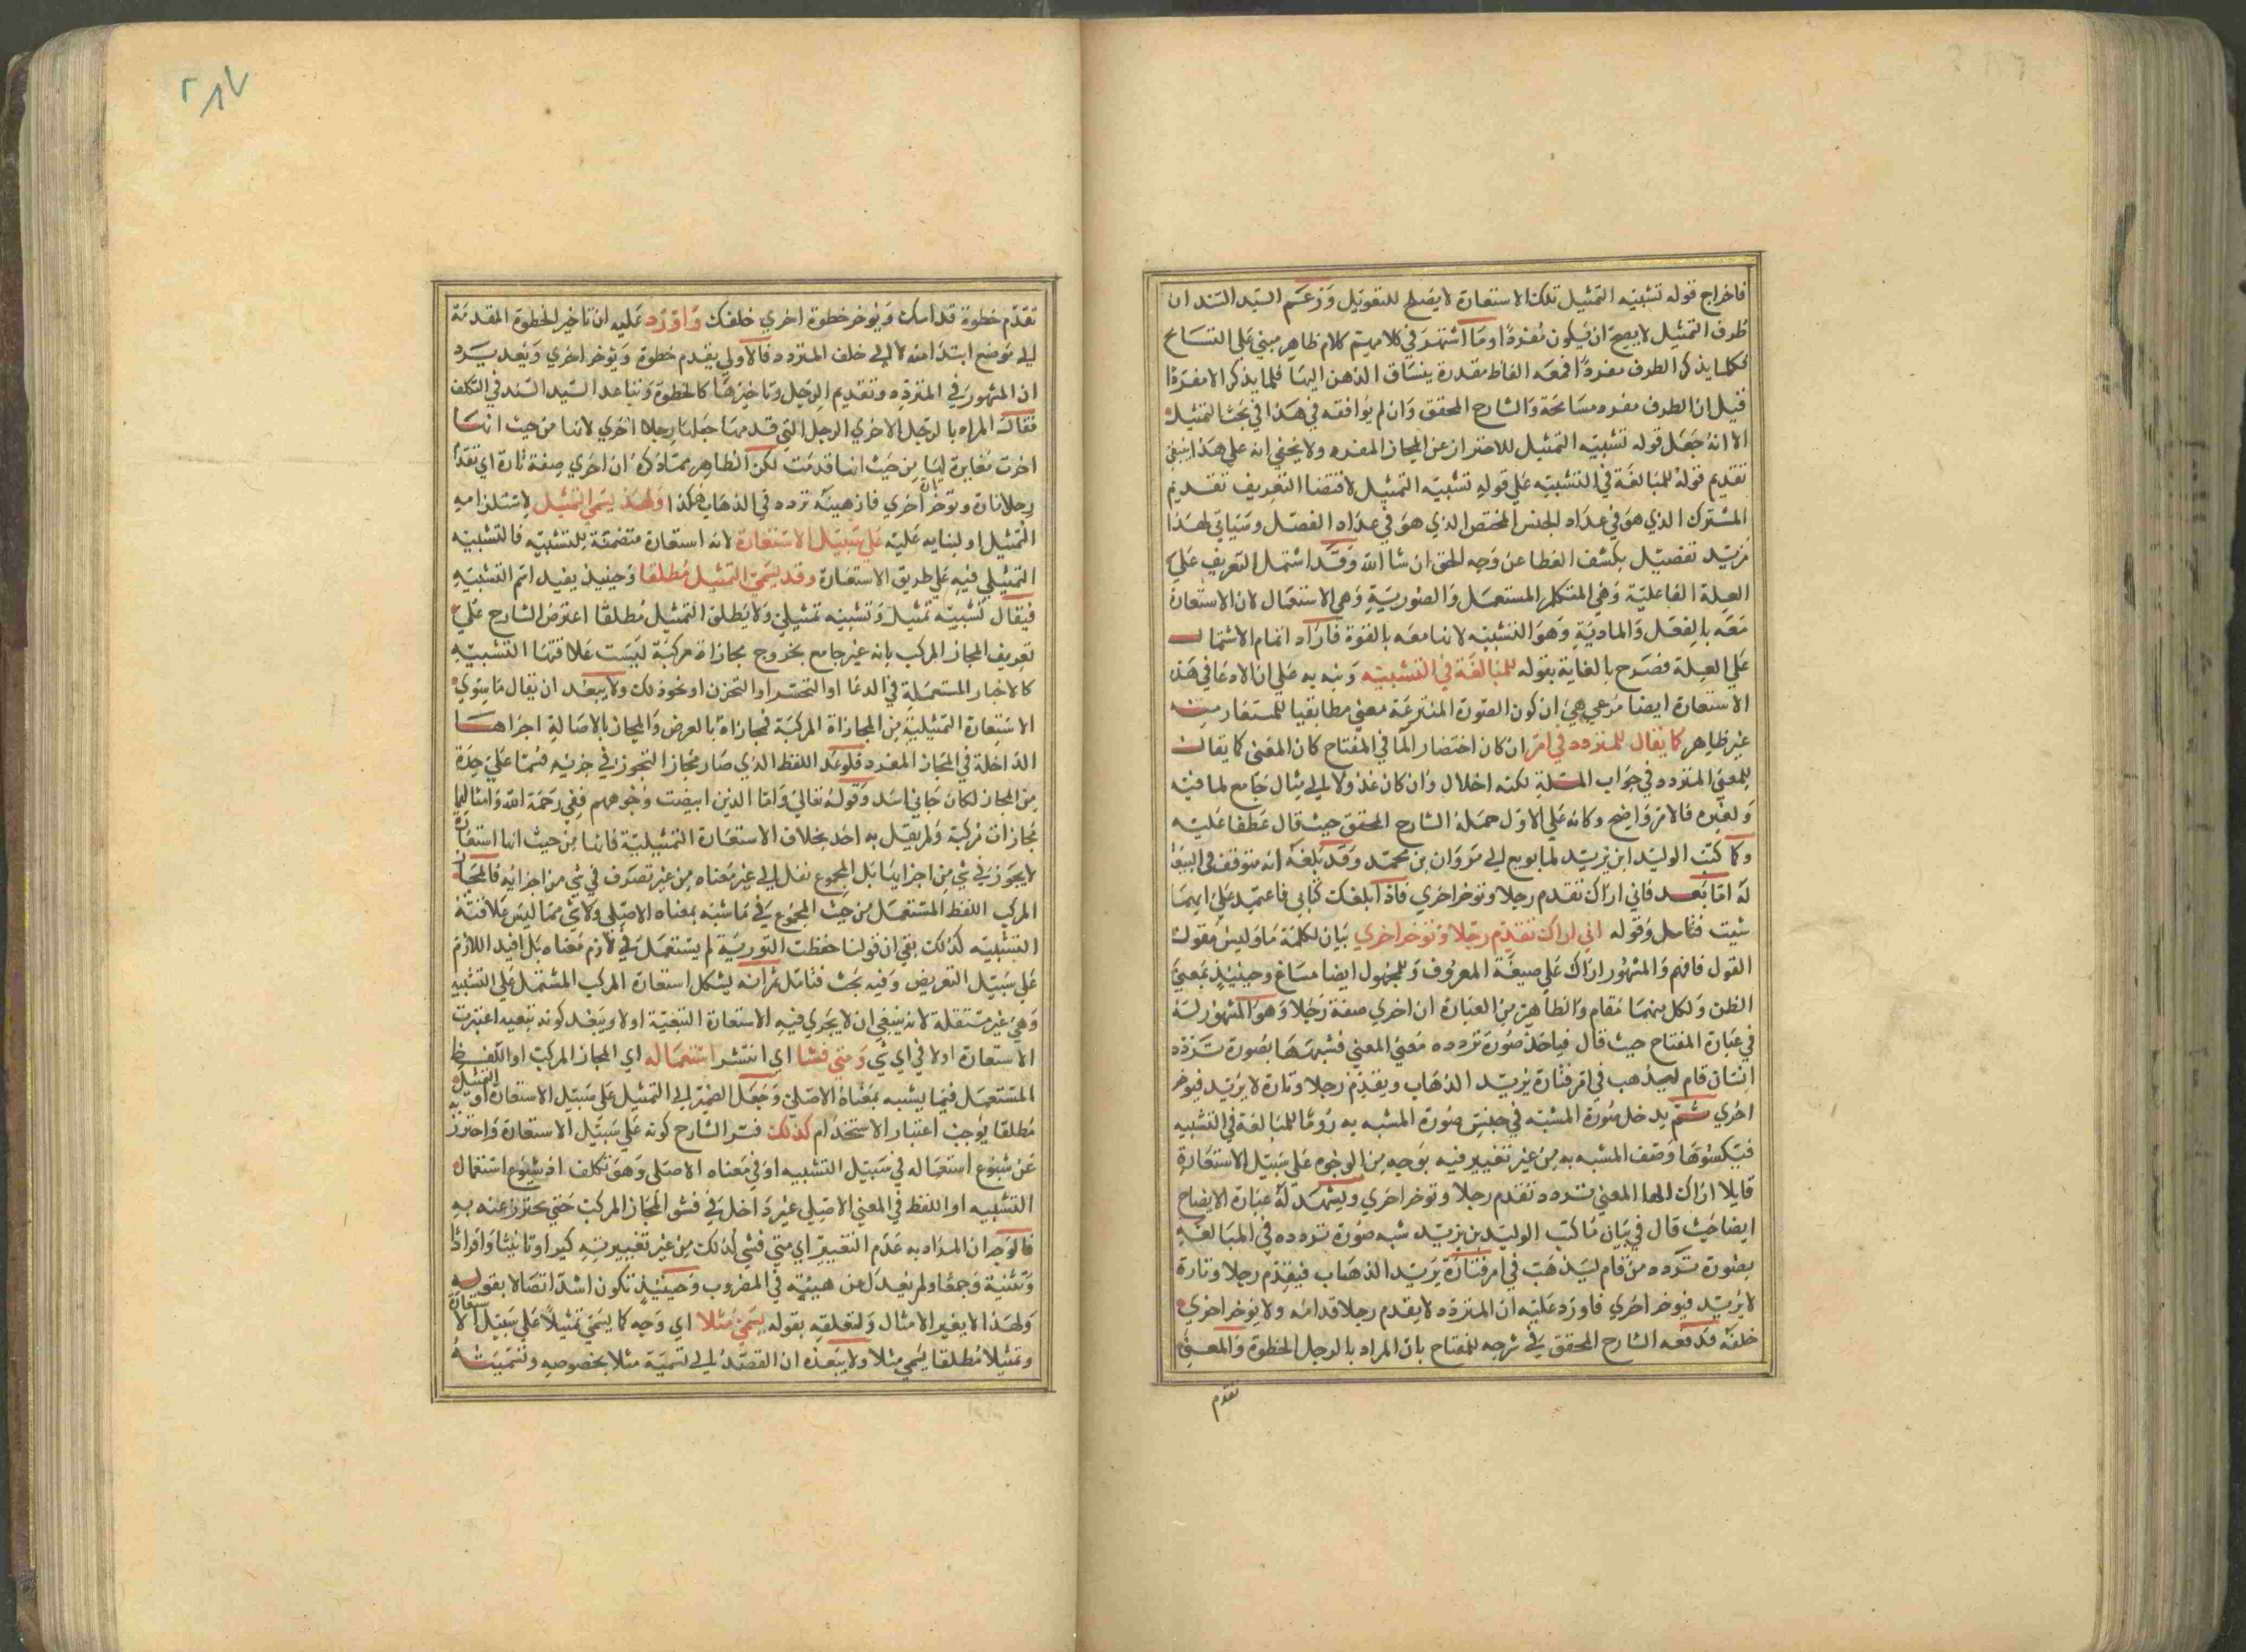 فاخراج قوله تشبيه التمثيل تلك الاستعارة لا يصلح للتعويل وزعم السيد السند ان
طرف التمثيل لا يصح ان يكون مفردا وما اشتهر في كلامهم كلام ظاهر مبني على التسامح
فكلما يذكر الطرف مفردا فمعه الفاظ مقدرة ينساق الذهن اليها فلما يذكر الا مفردا
قيل ان الطرف مفرد مسامحة والشارح المحقق وان لم يوافقه في هذا في بحث التمثيل
الا انه جعل قوله تشبيه التمثيل للاحتراز عن المجاز المفرد ولا يخفى انه على هذا ينبغي
تقديم قوله للمبالغة في التشبيه على قوله تشبيه التمثيل لاقتضا التعريف تقديم
المشترك الذي هو في عداد الجنس المختص الذي هو في عداد الفصل وسياتي لهذا
مزيد تفصيل بكشف الغطا عن وجه الحق ان شا الله وقد اشتمل التعريف على
العلة الفاعلية وهي المتكلم المستعمل والصورية وهي الاستعمال لان الاستعارة
معه بالفعل والمادية وهو التشبيه لانها معه بالقوة فاراد اتمام الاشتمال
على العلة فصرح بالغاية بقوله للمبالغة في التشبيه ونبه به على ان الادعا في هذه
الاستعارة ايضا مرعي هي ان كون الصورة المنتزعة معنى مطابقيا للمستعار منه
غير ظاهر كما يقال للمتردد في امر ان كان اختصار الما في المفتاح كان المعنى كما يقال
للمعنى المتردد في جواب المسئلة لكنه اخلال وان كان عدولا الى مثال جامع لما فيه
ولغيره فالامر واضح وكانه على الاول حمله الشارح المحقق حيث قال عطفا عليه
وكما كتب الوليد ابن يزيد لما بويع الى مروان بن محمد وقد بلغه انه متوقف في البيعة
له اما بعد فاني اراك تقدم رجلا وتوخر اخرى فاذا ابلغك كتابي فاعتمد على ايهما
شيت فتامل وقوله اني اراك تقدم رجلا وتوخر اخرى بيان لكلمة ما وليس مقول
القول فافهم والمشهور اراك على صيغة المعروف وللمجهول ايضا مساغ وحينيذ بمعنى
الظن ولكل منهما مقام والظاهر من العبارة ان اخرى صفة رجلا وهو المشهور لسه
في عبارة المفتاح حيث قال فياخذ صورة تردده معنى المعنى فشبهها بصورة تردد
انسان قام ليذهب في امر فتارة يريد الذهاب ويقدم رجلا وتارة لا يريد فيوخر
اخرى ثم يدخل صورة المشبه في جنس صورة المشبه به روما للمبالغة في التشبيه
فيكسوها وصف المشبه به من غير تغيير فيه بوجه من الوجوه على سبيل الاستعارة
قايلا اراك ايها المعنى تردده تقدم رجلا وتوخر اخرى ويشهد له عبارة الايضاح
ايضا حيث قال في بيان ما كتب الوليد بن يزيد شبه صورة تردده في المبالغة
بصورة تردد من قام ليذهب في امر فتارة يريد الذهاب فيقدم رجلا وتارة
لا يريد فيوخر اخرى فاورد عليه ان المتردد لا يقدم رجلا قدامه ولا يوخر اخرى
خلفه فدفعه الشارح المحقق في شرحه للمفتاح بان المراد بالرجل الخطوة والمعنى
تقدم
٢٨٧
تقدم خطوة قدامك ويوخر خطوة اخرى خلفك واورد عليه ان تاخير الخطوة المقدمة
الى موضع ابتدا منه لا الى خلف المتردد فالاولى يقدم خطوة ويوخر اخرى وبعد يرد
ان المشهور في المتردد وتقديم الرجل وتاخيرها كالخطوة وتباعد السيد السند في التكلف
فقال المراد بالرجل الاخرى الرجل التي قدمها جعلها رجلا اخرى لانها من حيث انها
اخرت مغايرة لها من حيث انها قدمت لكن الظاهر مما ذكره ان اخرى صفة تارة اي تقدم
رجلا تارة وتوخر تارة اخرى فاذ هيية تردده في الذهاب هكذا ولهذا يسمى التمثيل لاستلزامه
التمثيل او لبنايه عليه على سبيل الاستعارة لانه استعارة متضمنة للتشبيه فالتشبيه
التمثيلي فيه على طريق الاستعارة وقد يسمى التمثيل مطلقا وحينيذ يقيد اسم التشبيه
فيقال تشبيه تمثيل وتشبيه تمثيلي ولا يطلق التمثيل مطلقا اعترض الشارح على
تعريف المجاز المركب بانه غير جامع بخروج مجازاة مركبة ليست علاقتها التشبيه
كالاخبار المستعملة في الدعا او التحسر او التحزن او نحو ذلك ولا يبعد ان يقال ما سوى
الاستعارة التمثيلية من المجازاة المركبة فمجازاة بالعرض والمجاز بالاصالة اجزاها
الداخلة في المجاز المفرد فلو عد اللفظ الذي صار مجازا لتجوز في جزيه قسما على حدة
من المجاز لكان جاني اسد وقوله تعالى واما الذين ابيضت وجوههم ففي رحمة الله وامثالهما
مجازات مركبة ولم يقل به احد بخلاف الاستعارة التمثيلية فانها من حيث انها استعارة
لا يجوز في شي من اجزايها بل المجموع نقل الى غير معناه من غير تصرف في شي من اجزايه فالمجاز
المركب اللفظ المستعمل من حيث المجموع في ما شبه بمعناه الاصلي ولا شي مما ليس علاقته
التشبيه كذلك بقي ان قولنا حفظت التورية لم يستعمل في لازم معناه بل افيد اللازم
على سبيل التعريض وفيه بحث فتامل ثم انه يشكل استعارة المركب المشتمل على التشبيه
وهي غير مستقلة لانه ينبغي ان لا يجري فيه الاستعارة التبعية اولا ويبعد كونه تبعيه اعتبرت
الاستعارة اولا في اي شي ومتى فشا اي انتشر استعماله اي المجاز المركب او اللفظ
المستعمل فيما يشبه بمعناه الاصلي وجعل الضمير الى التمثيل على سبيل الاستعارة او التمثيل
مطلقا يوجب اعتبار الاستخدام كذلك فسر الشارح كونه على سبيل الاستعارة واحترز به
عن شيوع استعماله في سبيل التشبيه او في معناه الاصلي وهو تكلف اذ شيوع استعمال
التشبيه او اللفظ في المعنى الاصلي غير داخل في فشو المجاز المركب حتى يحترز عنه به
فالوجه ان المراد به عدم التغيير اي متى فشى كذلك من غير تغيير تذكيرا وتانيثا وافرادا
وتثنية وجمعا ولم يعدل عن هييته في المضروب وحينيذ تكون اشد اتصالا بقوله
ولهذا لا يغير الامثال ولتعلقه بقوله يسمى مثلا اي وجه كما يسمى تمثيلا على سبيل الاستعارة
وتمثيلا مطلقا يسمى مثلا ولا يبعد ان القصد الى تسمية مثلا بخصوصه وتسميته